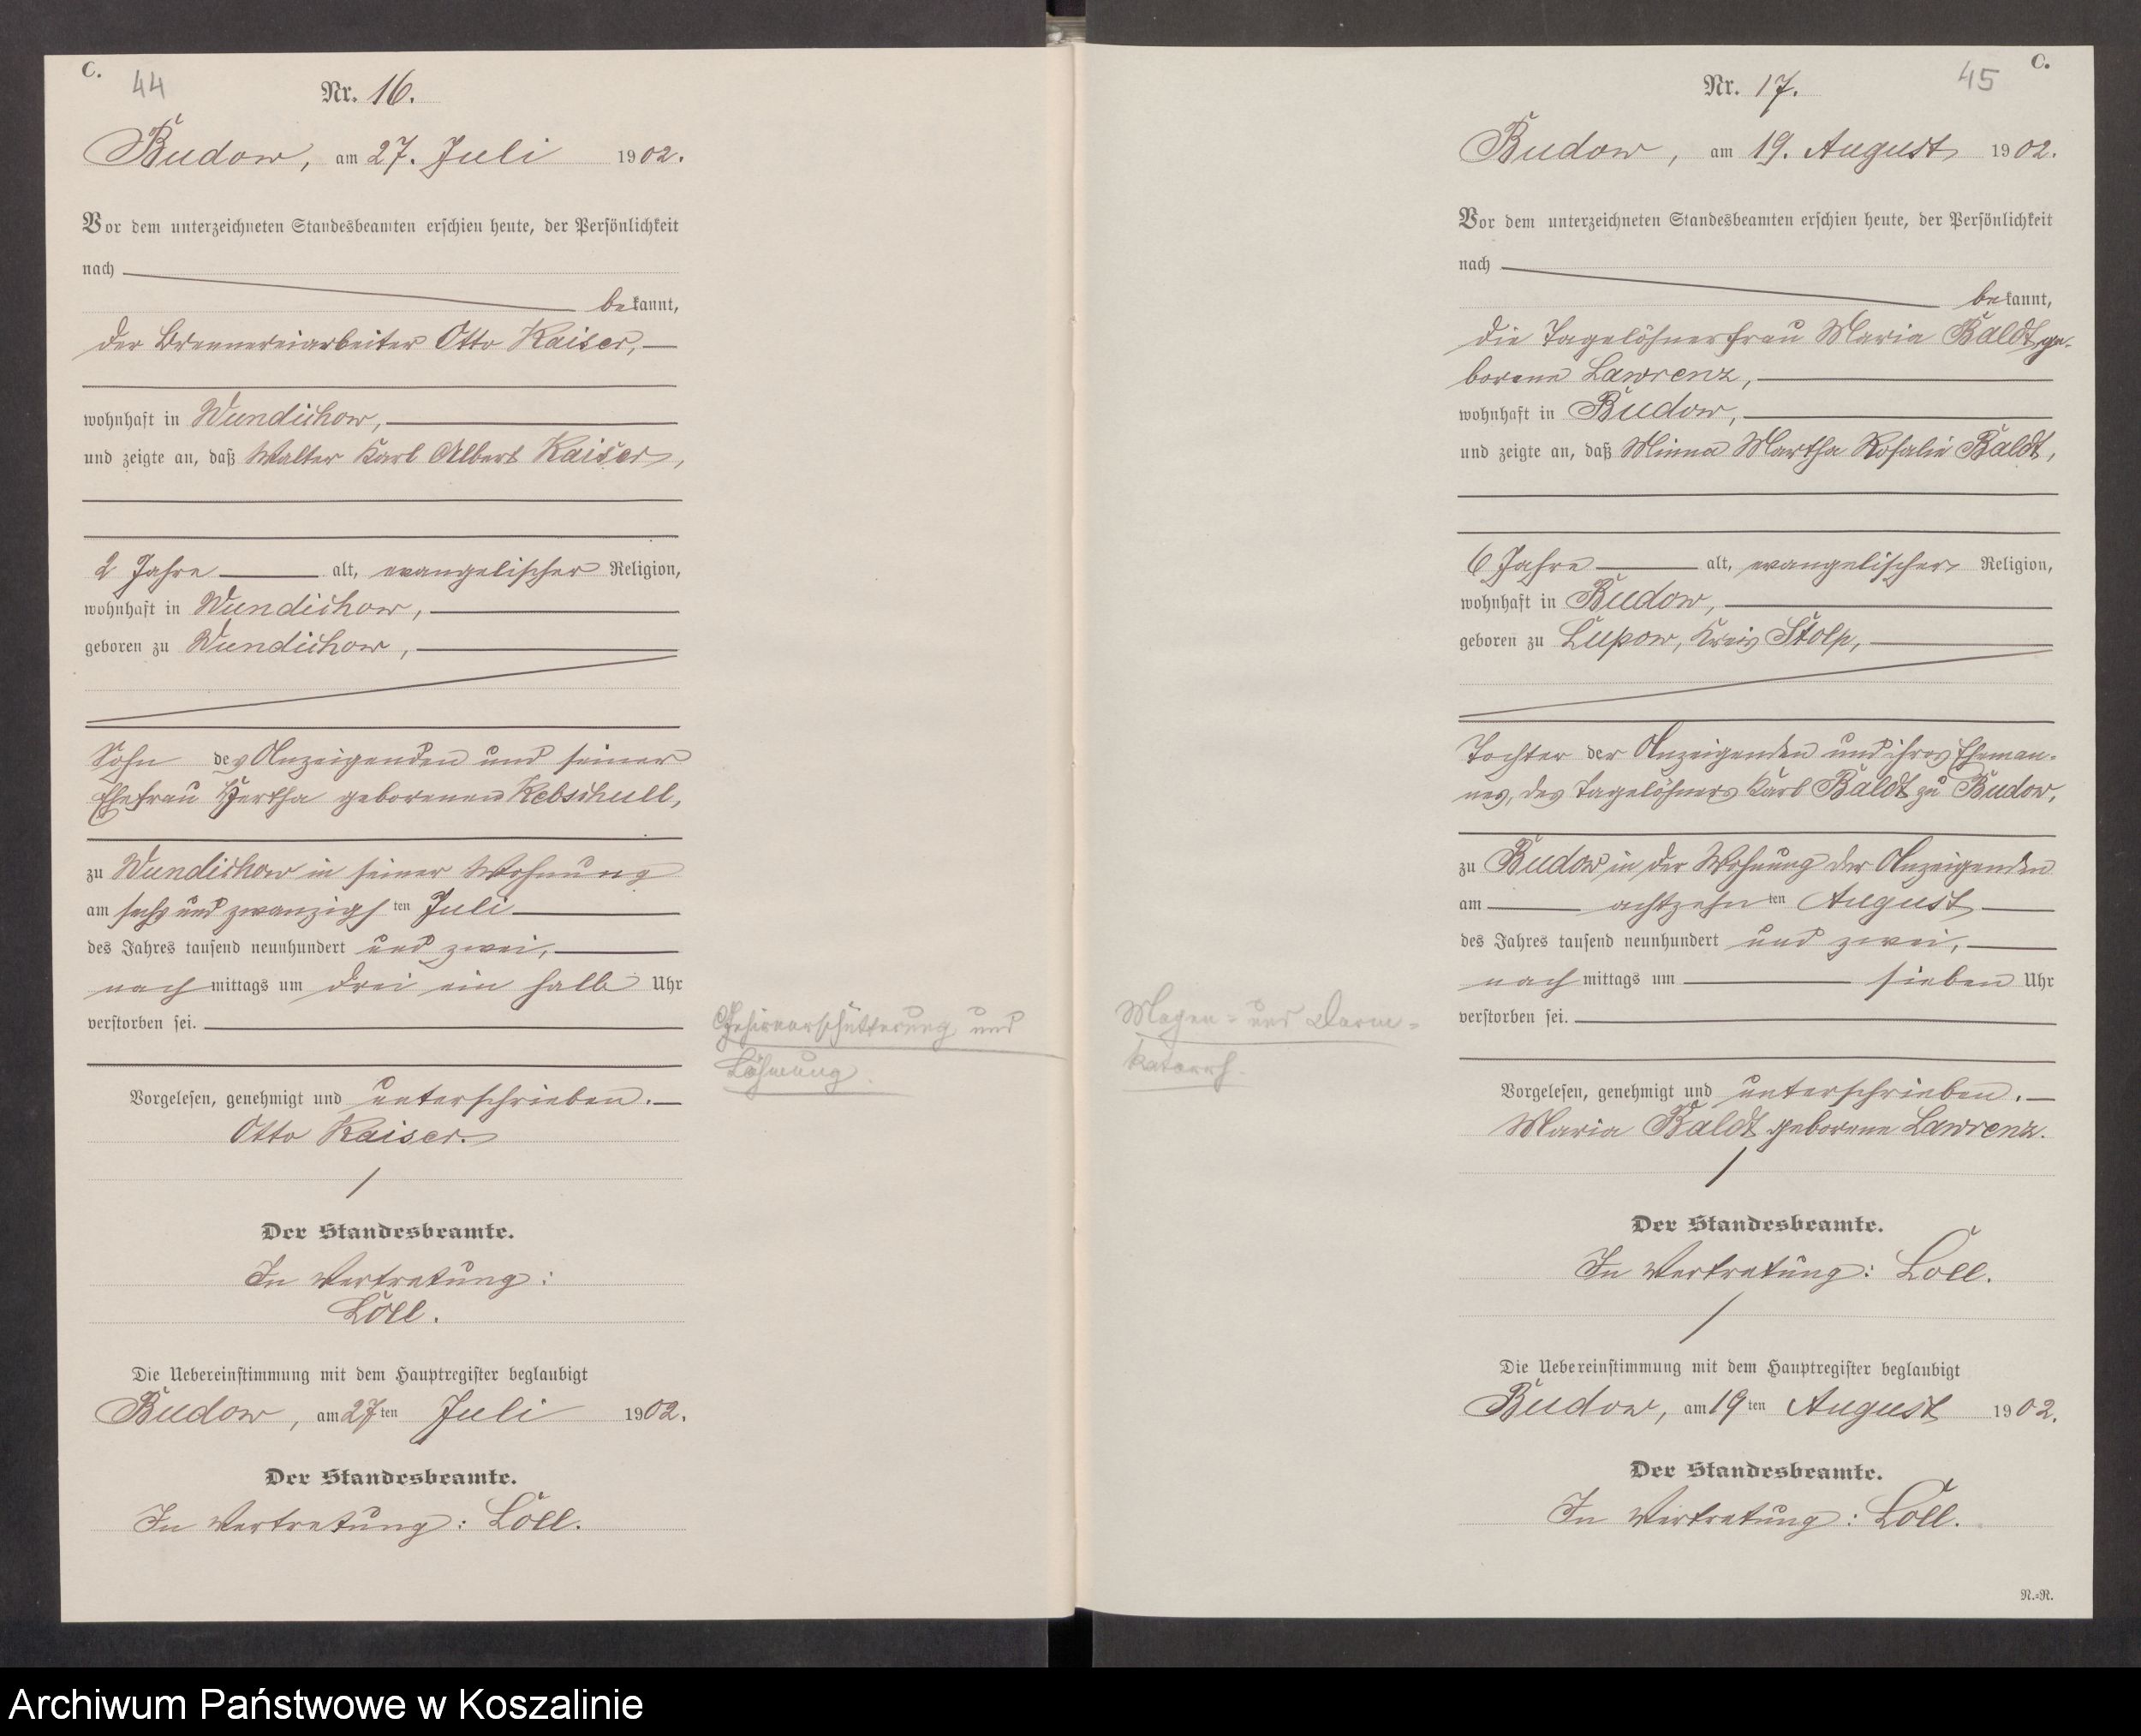 C.
44
Nr. 16.
Budow, am 27. Juli 1902.
Vor dem unterzeichneten Standesbeamten erschien heute, der Persönlichkeit
nach
bekannt,
der Brennereiarbeiter Otto Kaiser,
wohnhaft in Wundichow,
und zeigte an, daß Walter Karl Albert Kaiser,
2 Jahre alt, evangelischer Religion,
wohnhaft in Wundichow,
geboren zu Wundichow,
Sohn des Anzeigenden und seiner
Ehefrau Hertha geborenen Kebschull,
zu Wundichow in seiner Wohnung
am sechs und zwanzigsten Juli
des Jahres tausend neunhundert und zwei,
nachmittags um drei ein halb Uhr
verstorben sei.
Gehirnerschütterung und
Lähmung.
Vorgelesen, genehmigt und unterschrieben.
Otto Kaiser.
Der Standesbeamte.
In Vertretung:
Löll.
Die Uebereinstimmung mit dem Hauptregister beglaubigt
Budow, am 27ten Juli 1902.
Der Standesbeamte.
In Vertretung: Löll.
C.
45
Nr. 17.
Budow, am 19. August 1902.
Vor dem unterzeichneten Standesbeamten erschien heute, der Persönlichkeit
nach
bekannt,
die Tagelöhnerfrau Maria Baldt, ge-
borene Lawrenz,
wohnhaft in Budow,
und zeigte an, daß Minna Martha Rosalie Baldt,
6 Jahre alt, evangelischer Religion,
wohnhaft in Budow,
geboren zu Lupow, Kreis Stolp,
Tochter der Anzeigenden und ihres Eheman-
nes, des Tagelöhners Karl Baldt zu Budow,
zu Budow in der Wohnung der Anzeigenden
am achtzehnten August
des Jahres tausend neunhundert und zwei,
nachmittags um sieben Uhr
verstorben sei.
Magen- und Darm-
katarrh.
Vorgelesen, genehmigt und unterschrieben.
Maria Baldt geborene Lawrenz.
Der Standesbeamte.
In Vertretung: Löll.
Die Uebereinstimmung mit dem Hauptregister beglaubigt
Budow, am 19ten August 1902.
Der Standesbeamte.
In Vertretung: Löll.
N.=N.
Archiwum Państwowe w Koszalinie